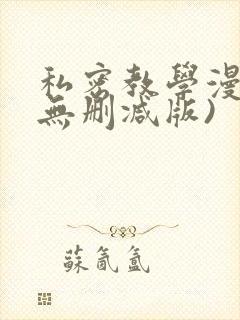 私密教學漫
無刪減版)
蘇氤氳